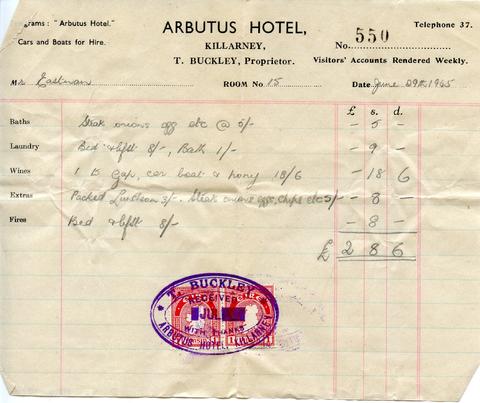 grams: "Arbutus Hotel."
Cars and Boats for Hire.
ARBUTUS HOTEL,
KILLARNEY,
T. BUCKLEY, Proprietor.
Telephone 37.
No. 550
Visitors' Accounts Rendered Weekly.
Mr Eastwan ROOM No 15 Date June 29th 1945
£ s. d.
Baths Steak onions egg etc @ 5/- - 5 -
Laundry Bed & bfst 8/-, Bath 1/- - 9 -
Wines 1 D Gap, car boat & pony 18/6 - 18 6
Extras Packed Luncheon 3/-. Steak onions eggs, chips etc 5/- - 8 -
Fires Bed & bfst 8/- - 8 -
£ 2 8 6
T. BUCKLEY
RECEIVED
JUL
WITH THANKS
ARBUTUS HOTEL, KILLARNEY